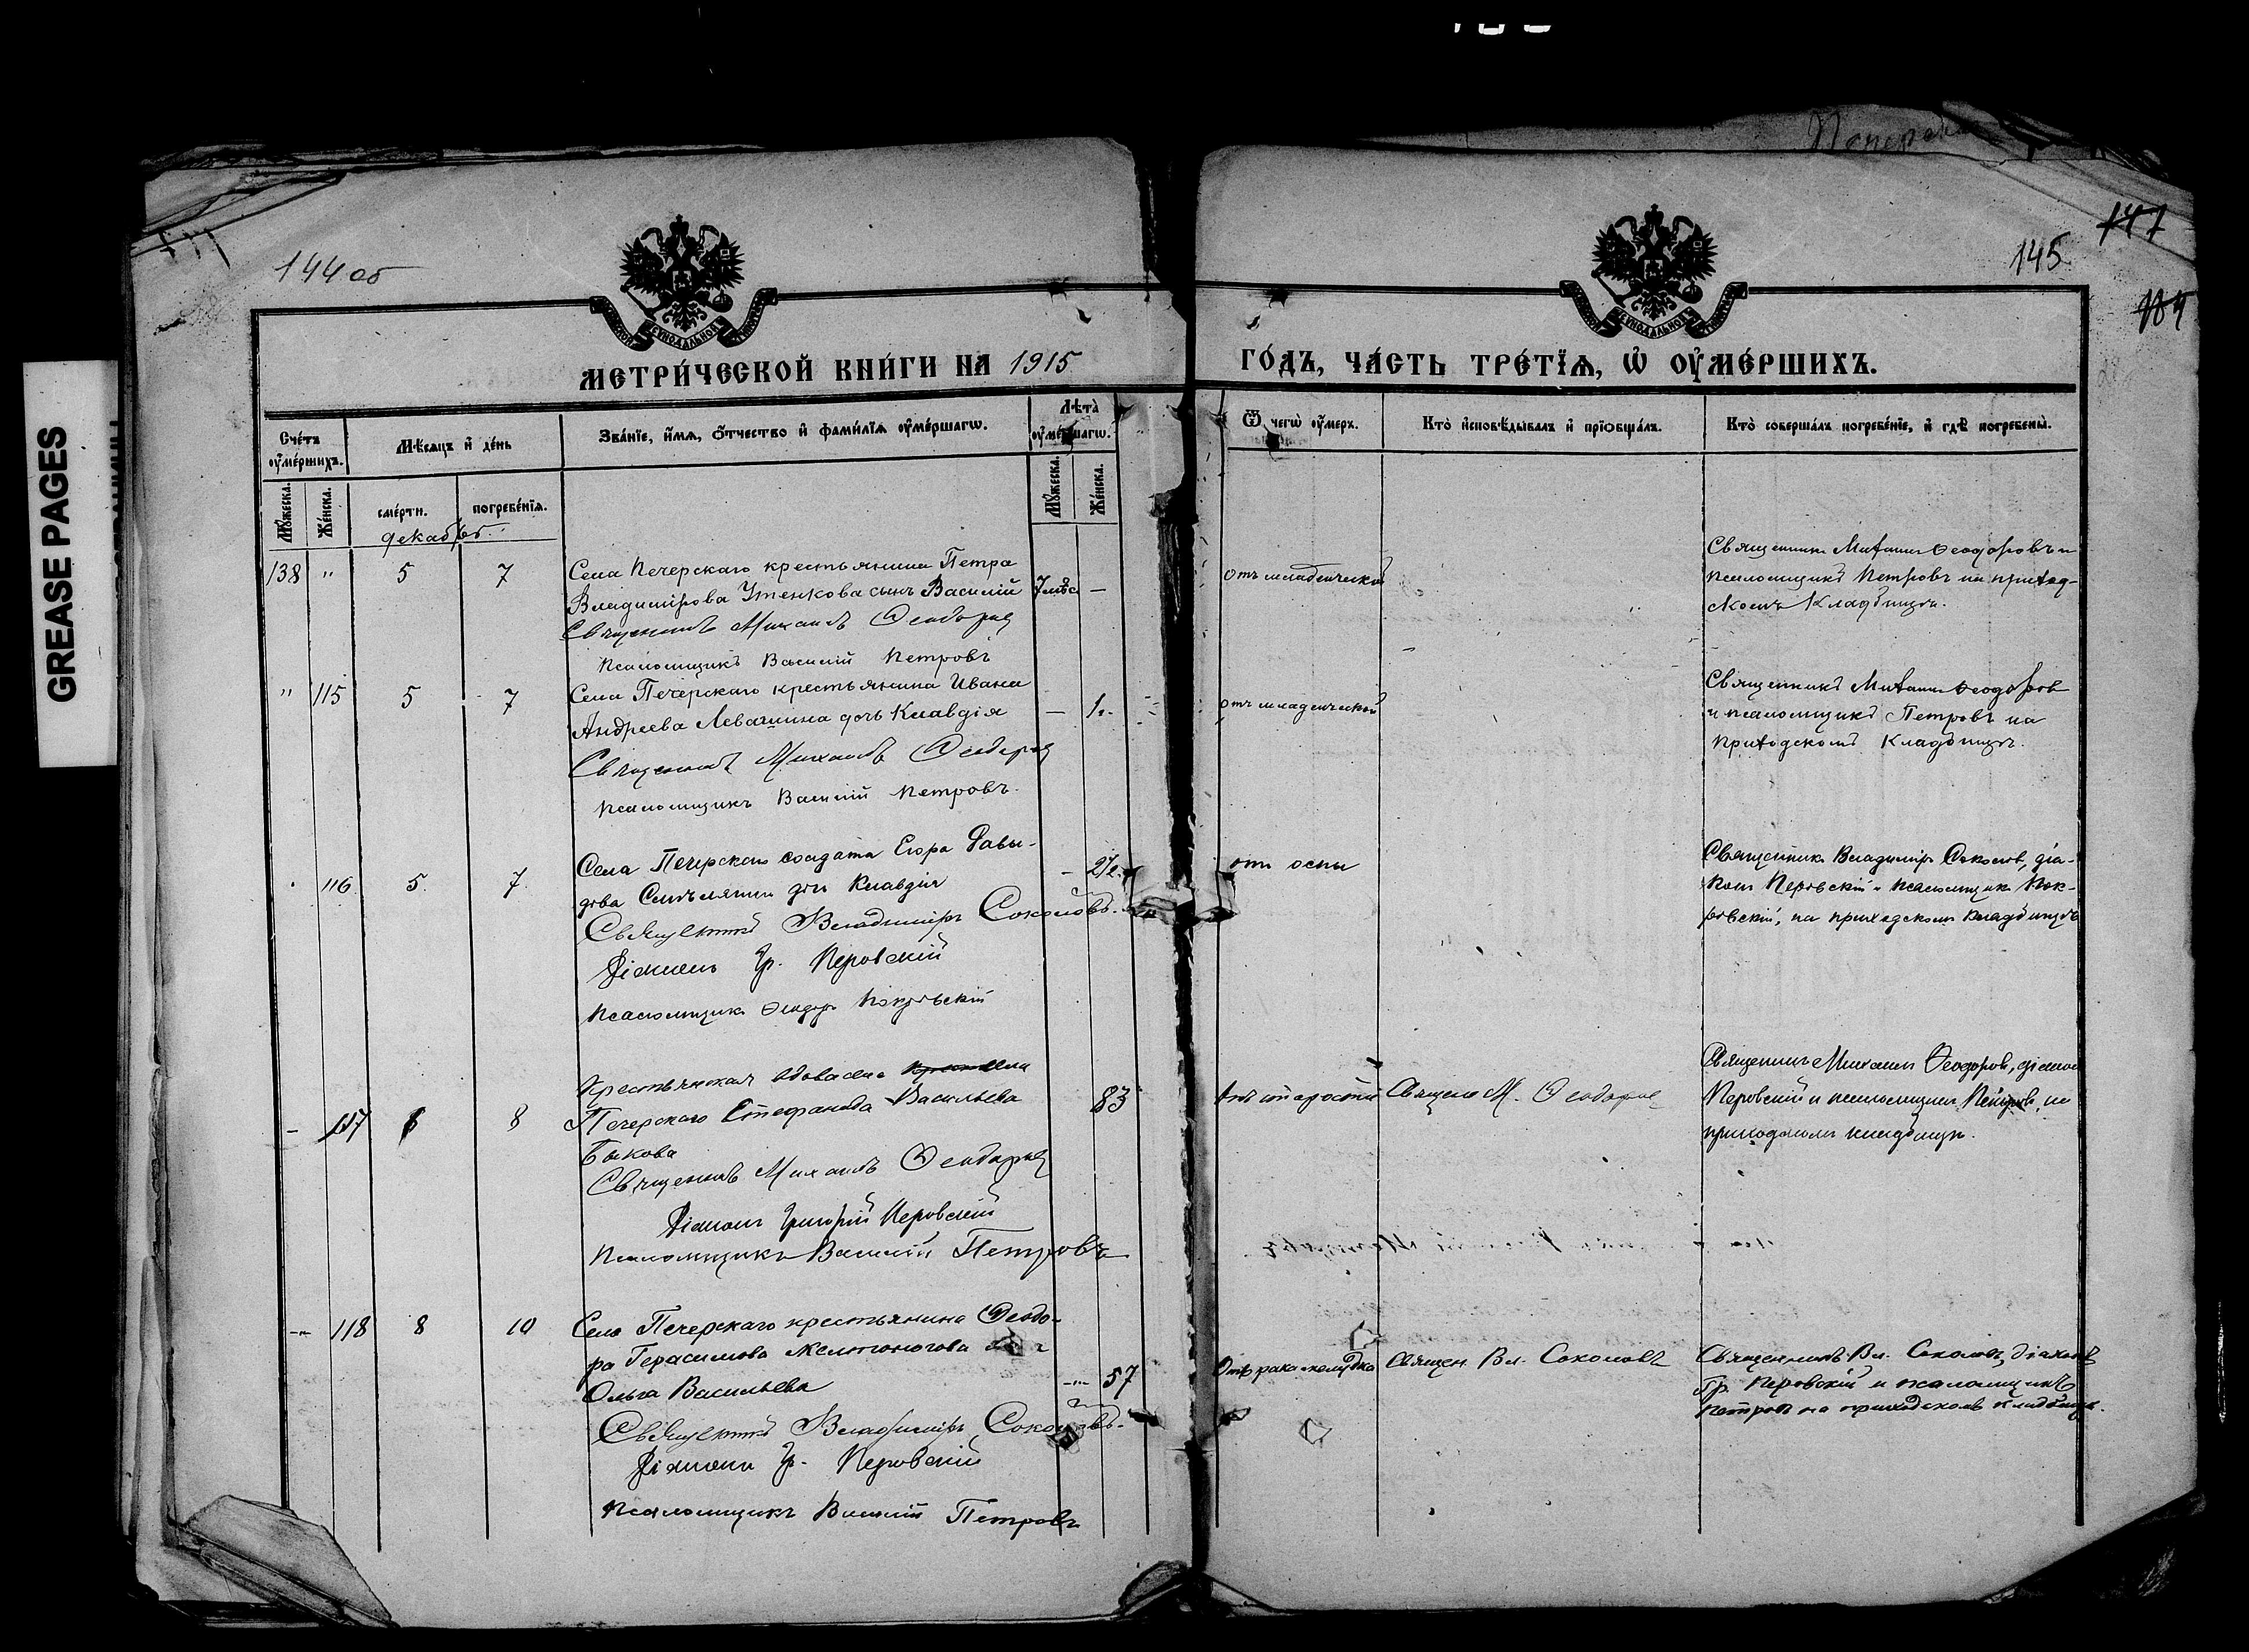 GREASE PAGES
144 об
145
147
МЕТРИ́ЧЕСКОЙ КНИ́ГИ НА 1915
ГО́ДЪ, ЧА́СТЬ ТРЕ́ТЇѦ, Ѡ҆ ОУ҆МЕ́РШИХЪ.
Сче́тъ оу҆ме́ршихъ.
Мѣ́сѧцъ и҆ де́нь
Зва́нїе, и҆́мѧ, ѻ҆́тчество и҆ фами́лїѧ оу҆ме́ршагѡ.
Лѣ́та оу҆ме́ршагѡ.
Ѿ чегѡ̀ оу҆́мерх.
Кто̀ и҆сповѣ́дывалъ и҆ прїѡбща́лъ.
Кто̀ соверша́лъ погребе́нїе, и҆ гдѣ̀ погребены̀.
Мꙋ́жеска.
Же́нска.
сме́рти.
погребе́нїѧ.
Мꙋ́жеска.
Же́нска.
декабрь
138 " 5 7
Села Печерскаго крестьянина Петра
Владимірова Утенкова сынъ Василій 7 мѣс —
Священникъ Михаилъ Ѳеодоровъ
Псаломщикъ Василій Петровъ
отъ младенческой
Священникъ Михаилъ Ѳеодоровъ и
псаломщикъ Петровъ на приход-
скомъ Кладбищѣ.
" 115 5 7
Села Печерскаго крестьянина Ивана
Андреева Левашина дочь Клавдія — 1 г.
Священникъ Михаилъ Ѳеодоровъ
Псаломщикъ Василій Петровъ.
отъ младенческой
Священникъ Михаилъ Ѳеодоров
и псаломщикъ Петровъ на
приходскомъ Кладбищѣ.
116 5. 7.
Села Печерскаго солдата Егора Давы-
дова дочь Клавдія
Священникъ Владиміръ Соколовъ.
Діаконъ Гр. Перовскій
Псаломщикъ Ѳеодоръ Покровскій
отъ оспы
Священникъ Владиміръ Соколов, діа-
конъ Перовскій и псаломщик Пок-
ровскій, на приходскомъ кладбищѣ
– 117 6 8
Крестьянская вдова села
Печерскаго Стефанида Васильева 83
Быкова
Священникъ Михаилъ Ѳеодоровъ
Діаконъ Григорій Перовскій
Псаломщикъ Василій Петровъ
Отъ старости
Священ М. Ѳеодоров
Священникъ Михаилъ Ѳеодоров, діакон
Перовскій и псаломщикъ Петровъ, на
приходскомъ кладбищѣ.
–"– 118 8 10
Села Печерскаго крестьянина Ѳеодо-
ра Герасимова Желтоногова
Ольга Васильева –"– 57
Священникъ Владиміръ Соколовъ.
Діаконъ Гр. Перовскій
Псаломщикъ Василій Петровъ
Отъ рака желудка
Священ. Вл. Соколовъ
Священникъ Вл. Соколовъ, діаконъ
Гр. Перовскій и псаломщикъ
Петровъ на приходскомъ кладбищѣ.